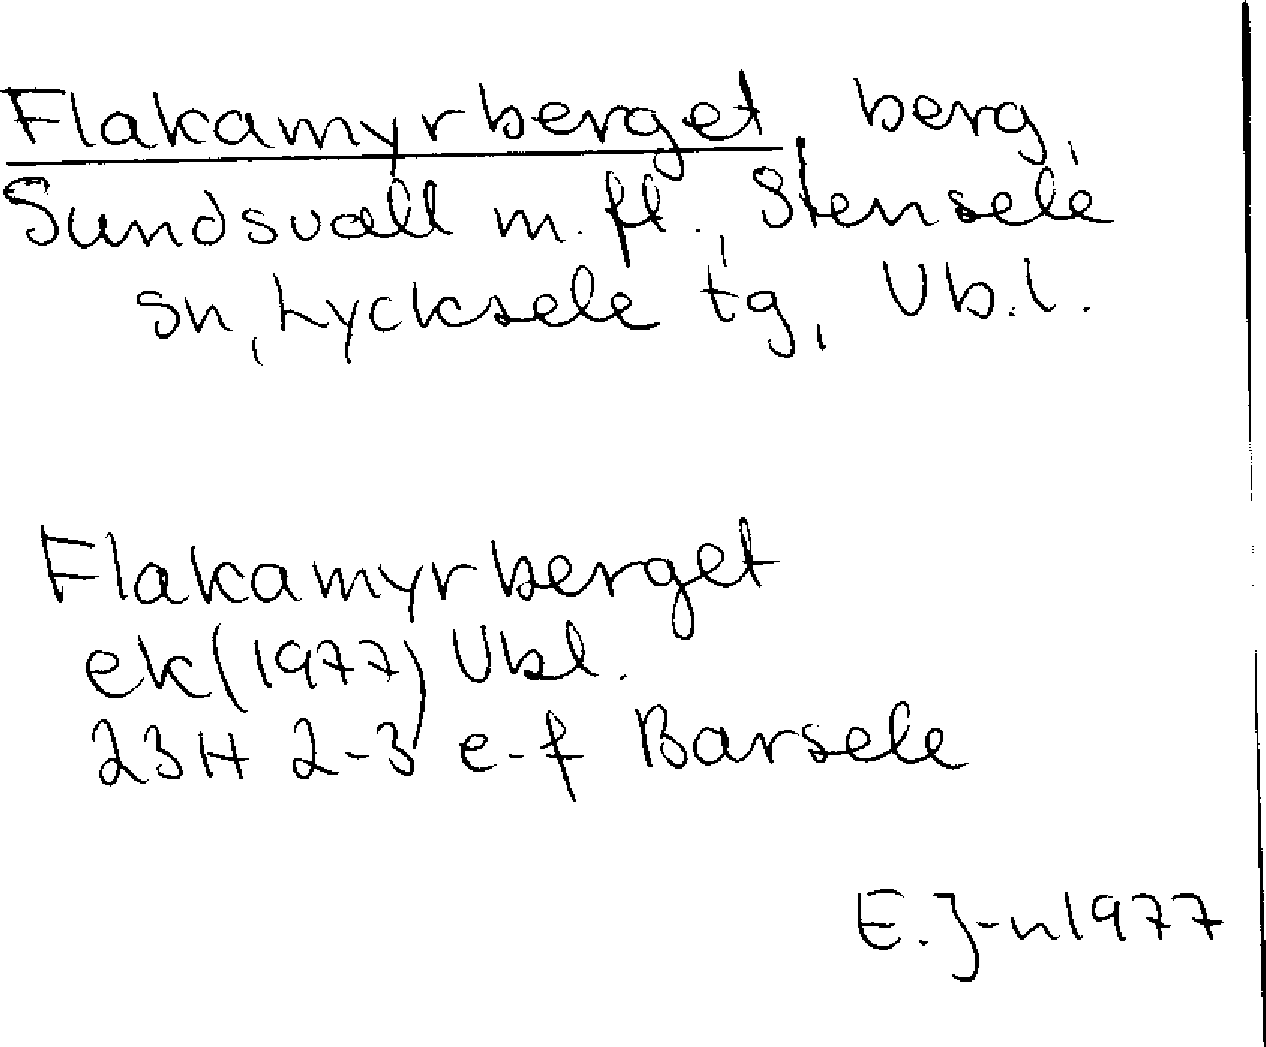 Flakamyrberget, berg,
Sundsvall m.fl., Stensele
sn, Lycksele tg, Vb.l.
Flakamyrberget
ek(1977) Vbl.
23H 2-3 e-f Barsele
E.J-n 1977